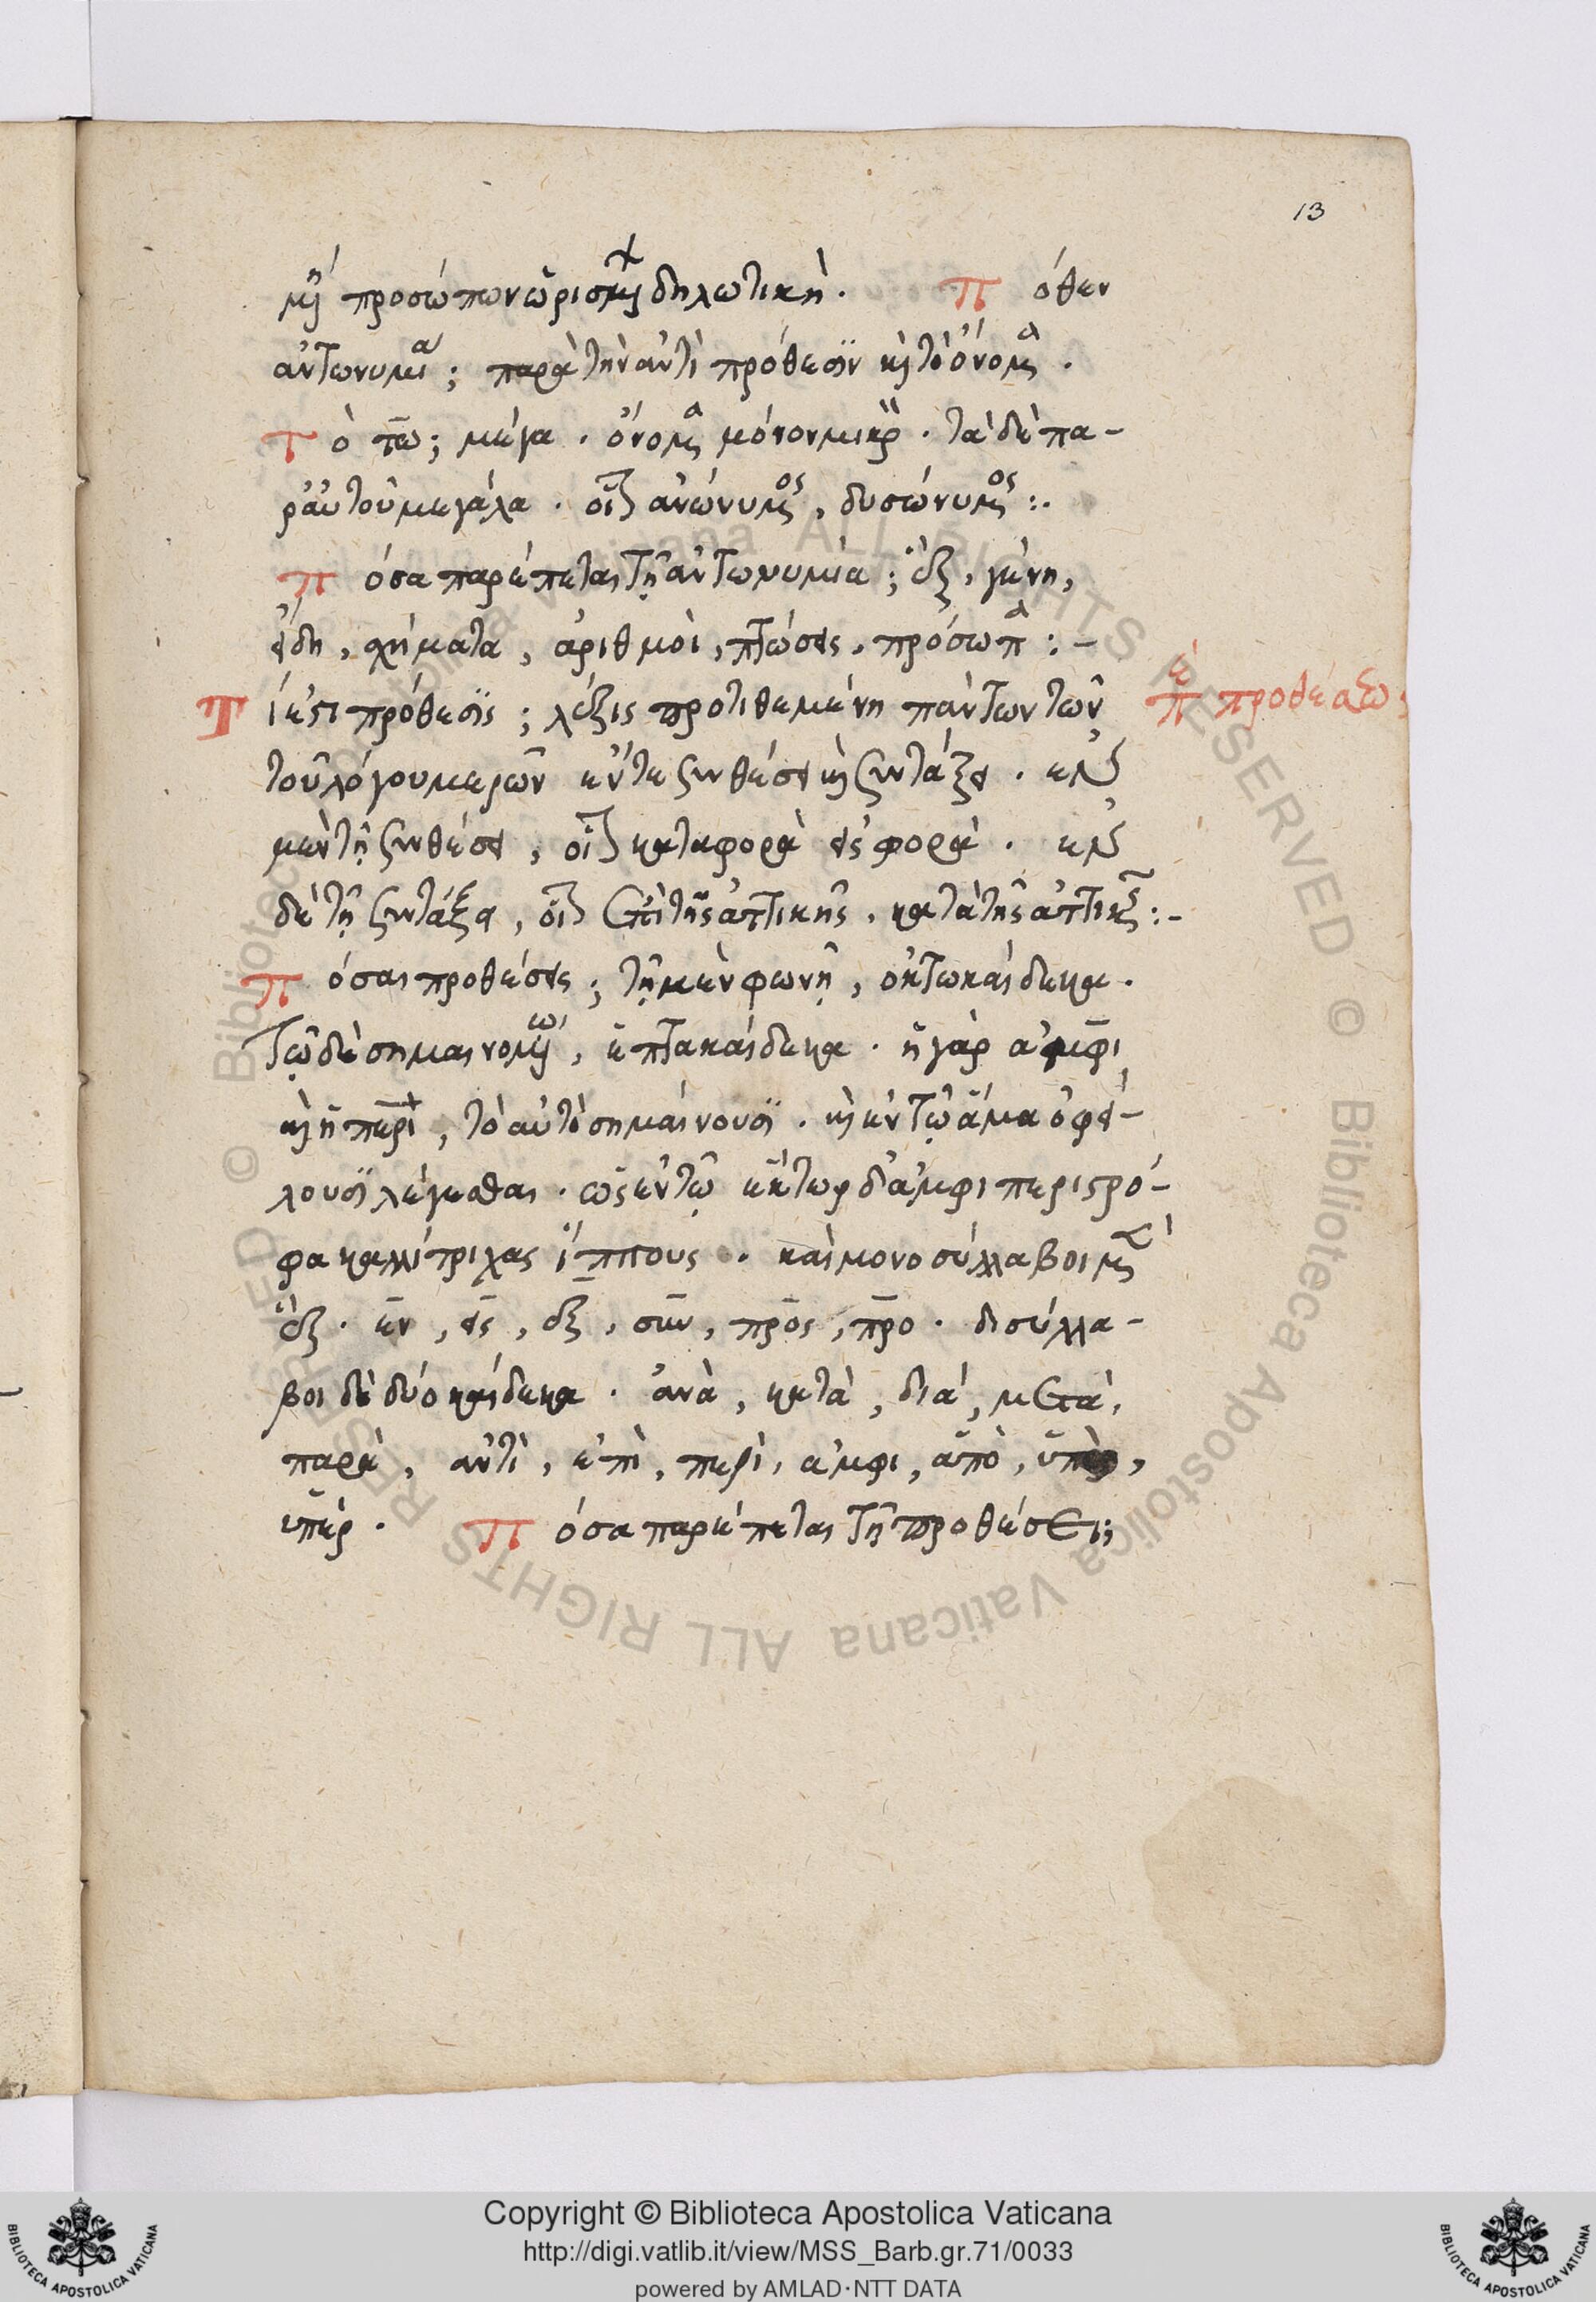 13
μένη προσώπων ὡρισμένων δηλωτική. Πόθεν
ἀντωνυμία; παρὰ τὴν ἀντὶ πρόθεσϊν καὶ τὸ ὄνομα.
Τὸ τω; μέγα. ὄνομα μόνον μικρὸν. τὰ δὲ πα-
ρ' αὐτοῦ μεγάλα. οἷον ἀνώνυμος, δυσώνυμος:.
Πόσα παρέπεται τῇ ἀντωνυμία; ἓξ, γένη,
εἴδη, σχήματα, ἀριθμοὶ, πτώσεις, πρόσωπα:-
Τί ἐστι πρόθεσϊς; λέξις προτιθεμένη πάντων τῶν
περὶ προθέσεως
τοῦ λόγου μερῶν ἔν τε συνθέσει καὶ συντάξει. ἐν
μὲν τῇ συνθέσει, οἷον καταφορὰ εἰσφορὰ. ἐν
δὲ τῇ συντάξει, οἷον ἐπὶ τῆς ἀττικῆς, κατὰ τῆς ἀττικῆς:-
Πόσαι προθέσεις; τῇ μὲν φωνῇ, ὀκτωκαίδεκα.
Τῷ δὲ σημαινομένῳ, ἑπτακαίδεκα. ἡ γὰρ ἀμφι
καὶ ἡ περὶ, τὸ αὐτὸ σημαίνουσϊ. καὶ ἐν τῷ ἅμα ὀφεί-
λουσϊ λέγεσθαι. ὡς ἐν τῷ ἕκτωρ δ' ἀμφι περιστρό-
φα καλλίτριχας ἵππους. καὶ μονοσύλλαβοι μὲν
ἓξ. ἐν, εἰς, ἐξ, σὺν, πρὸς, πρὸ. δισύλλα-
βοι δὲ δύο καίδεκα. ἀνὰ, κατὰ, διά, μετὰ,
παρὰ, ἀντὶ, ἐπὶ, περὶ, ἀμφι, ἀπὸ, ὑπὸ,
ὑπὲρ. Πόσα παρέπεται τῇ προθέσει;
Copyright © Biblioteca Apostolica Vaticana
http://digi.vatlib.it/view/MSS_Barb.gr.71/0033
powered by AMLAD·NTT DATA